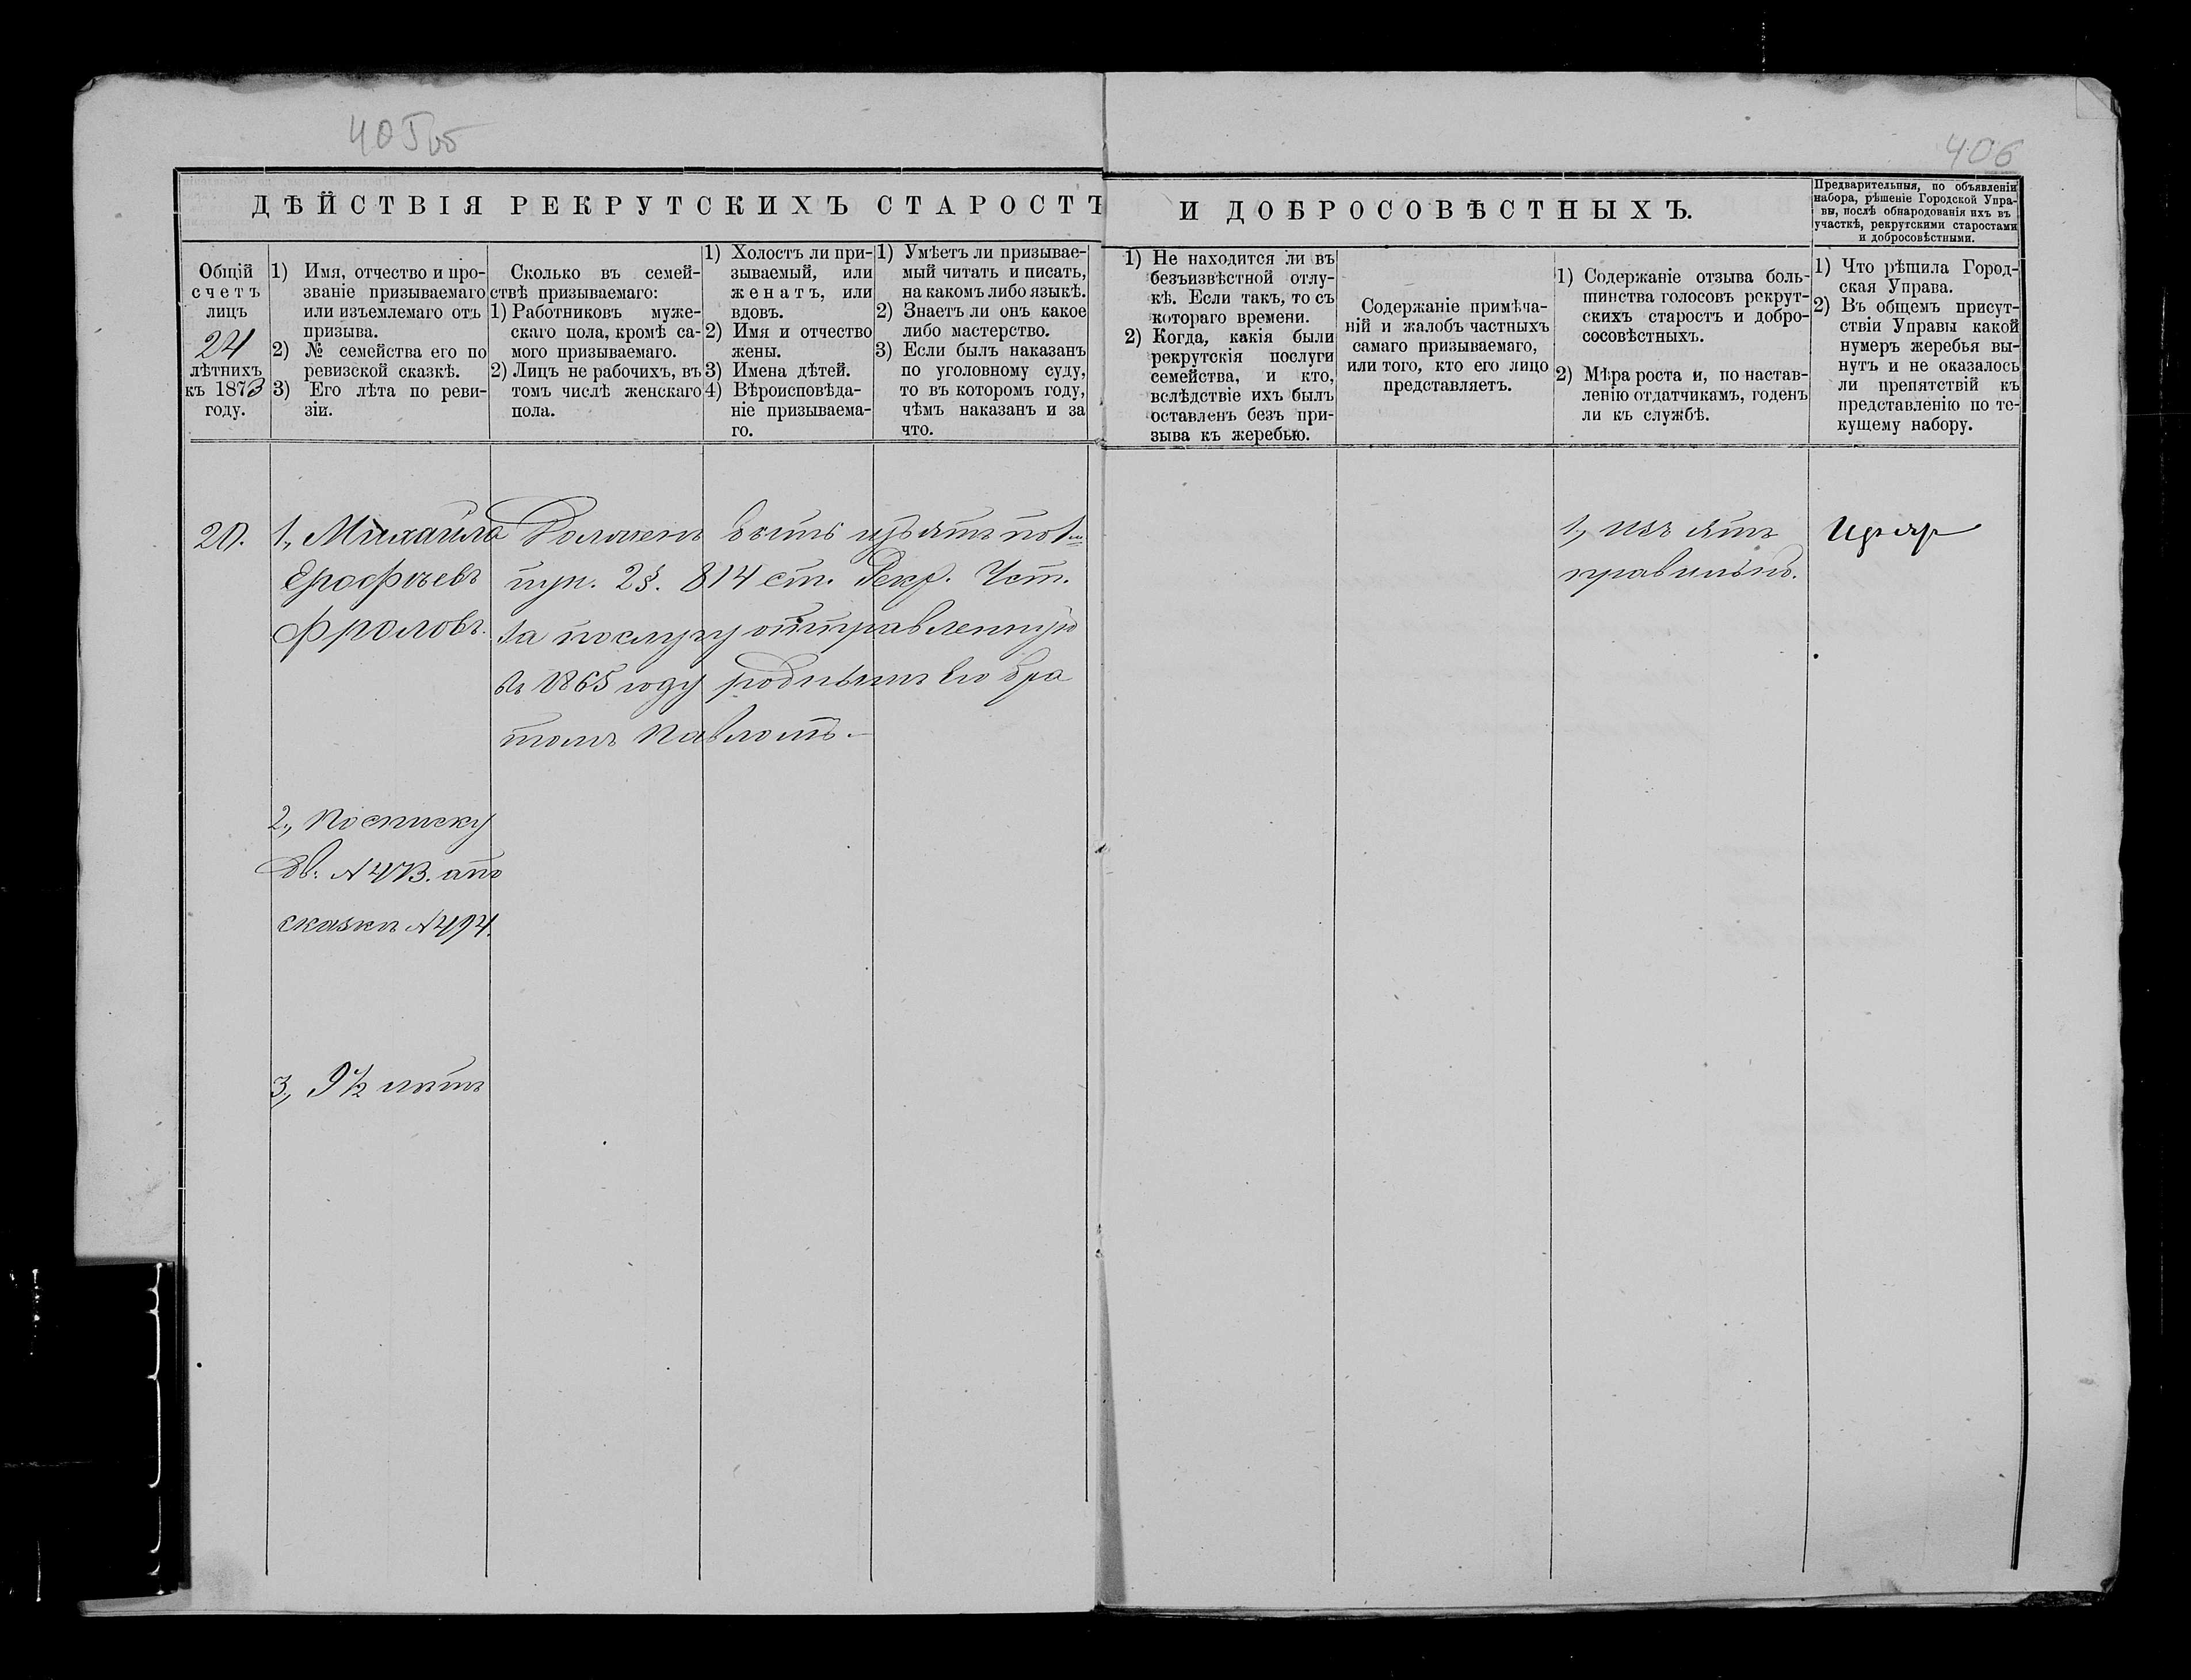 405об
406
ДѢЙСТВІЯ РЕКРУТСКИХЪ СТАРОСТЪ
И ДОБРОСОВѢСТНЫХЪ.
Предварительныя, по объявленіи
набора, рѣшеніе Городской Упра-
вы, послѣ обнародованія ихъ въ
участкѣ, рекрутскими старостами
и добросовѣстными.
Общій
счетъ
лицъ
24
лѣтнихъ
къ 1873
году.
1) Имя, отчество и про-
званіе призываемаго
или изъемлемаго отъ
призыва.
2) № семейства его по
ревизской сказкѣ.
3) Его лѣта по реви-
зіи.
Сколько въ семей-
ствѣ призываемаго:
1) Работниковъ муже-
скаго пола, кромѣ са-
мого призываемаго.
2) Лицъ не рабочихъ, въ
томъ числѣ женскаго
пола.
1) Холостъ ли при-
зываемый, или
женатъ, или
вдовъ.
2) Имя и отчество
жены.
3) Имена дѣтей.
4) Вѣроисповѣда-
ніе призываема-
го.
1) Умѣетъ ли призывае-
мый читать и писать,
на какомъ либо языкѣ.
2) Знаетъ ли онъ какое
либо мастерство.
3) Если былъ наказанъ
по уголовному суду,
то въ которомъ году,
чѣмъ наказанъ и за
что.
1) Не находится ли въ
безъизвѣстной отлу-
кѣ. Если такъ, то съ
котораго времени.
2) Когда, какія были
рекрутскія послуги
семейства, и кто,
вслѣдствіе ихъ былъ
оставленъ безъ при-
зыва къ жеребью.
Содержаніе примѣча-
ній и жалобъ частныхъ
самаго призываемаго,
или того, кто его лицо
представляетъ.
1) Содержаніе отзыва боль-
шинства голосовъ рекрут-
скихъ старостъ и добро-
сосовѣстныхъ.
2) Мѣра роста и, по настав-
ленію отдатчикамъ, годенъ
ли къ службѣ.
1) Что рѣшила Город-
ская Управа.
2) Въ общемъ присут-
ствіи Управы какой
нумеръ жеребья вы-
нутъ и не оказалось
ли препятствій къ
представленію по те-
кущему набору.
20.
1., Михаила
Ерофѣевъ
Фроловъ.
Долженъ быть изъятъ по 1му
пун. 2§. 814 ст. Рекр. Уст.
за послугу отправленную
въ 1865 году роднымъ его бра
томъ Павломъ.
1., изъятъ
правильно.
2., По списку
Дв. №473. а по
сказкѣ №494.
3., 9½ лѣтъ